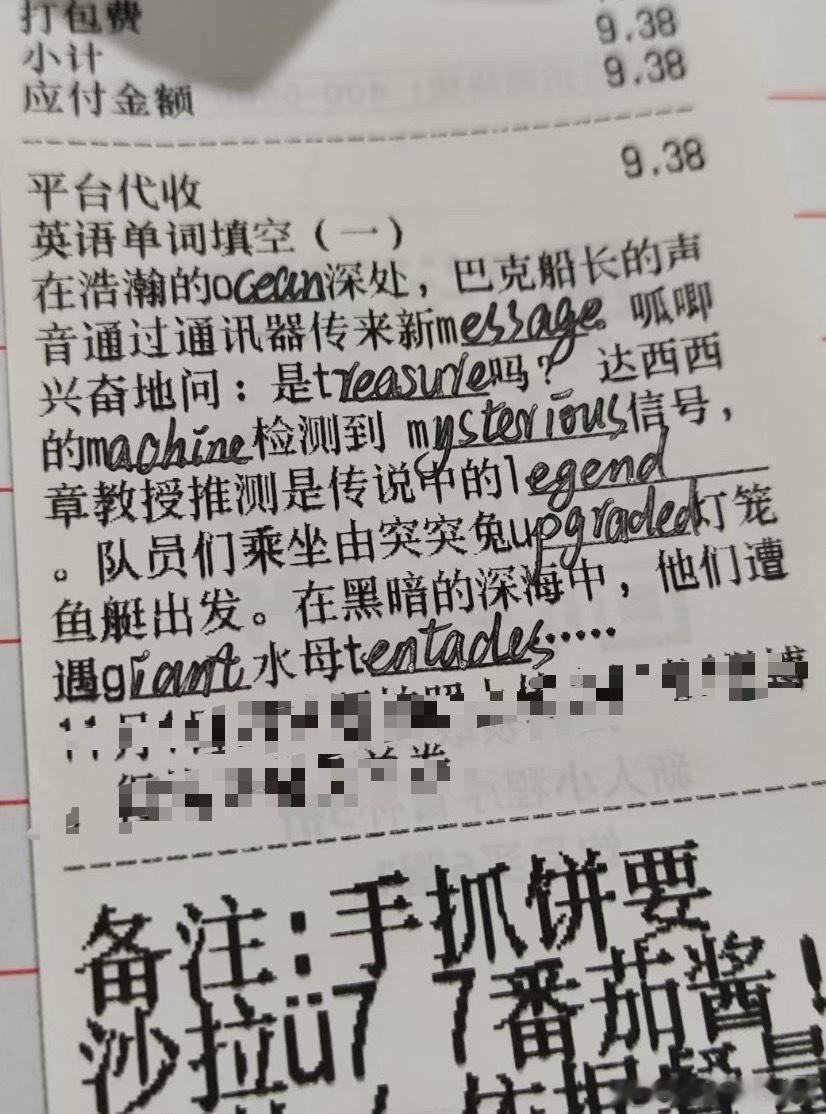 打包费
小计 9.38
应付金额 9.38
平台代收 9.38
英语单词填空（一）
在浩瀚的ocean深处，巴克船长的声
音通过通讯器传来新message。呱唧
兴奋地问：是treasure吗？ 达西西
的machine检测到 mysterious信号，
章教授推测是传说中的legend
。队员们乘坐由突突兔upgraded灯笼
鱼艇出发。在黑暗的深海中，他们遭
遇giant水母tentacles……
备注：手抓饼要
沙拉ü7 7番茄酱！